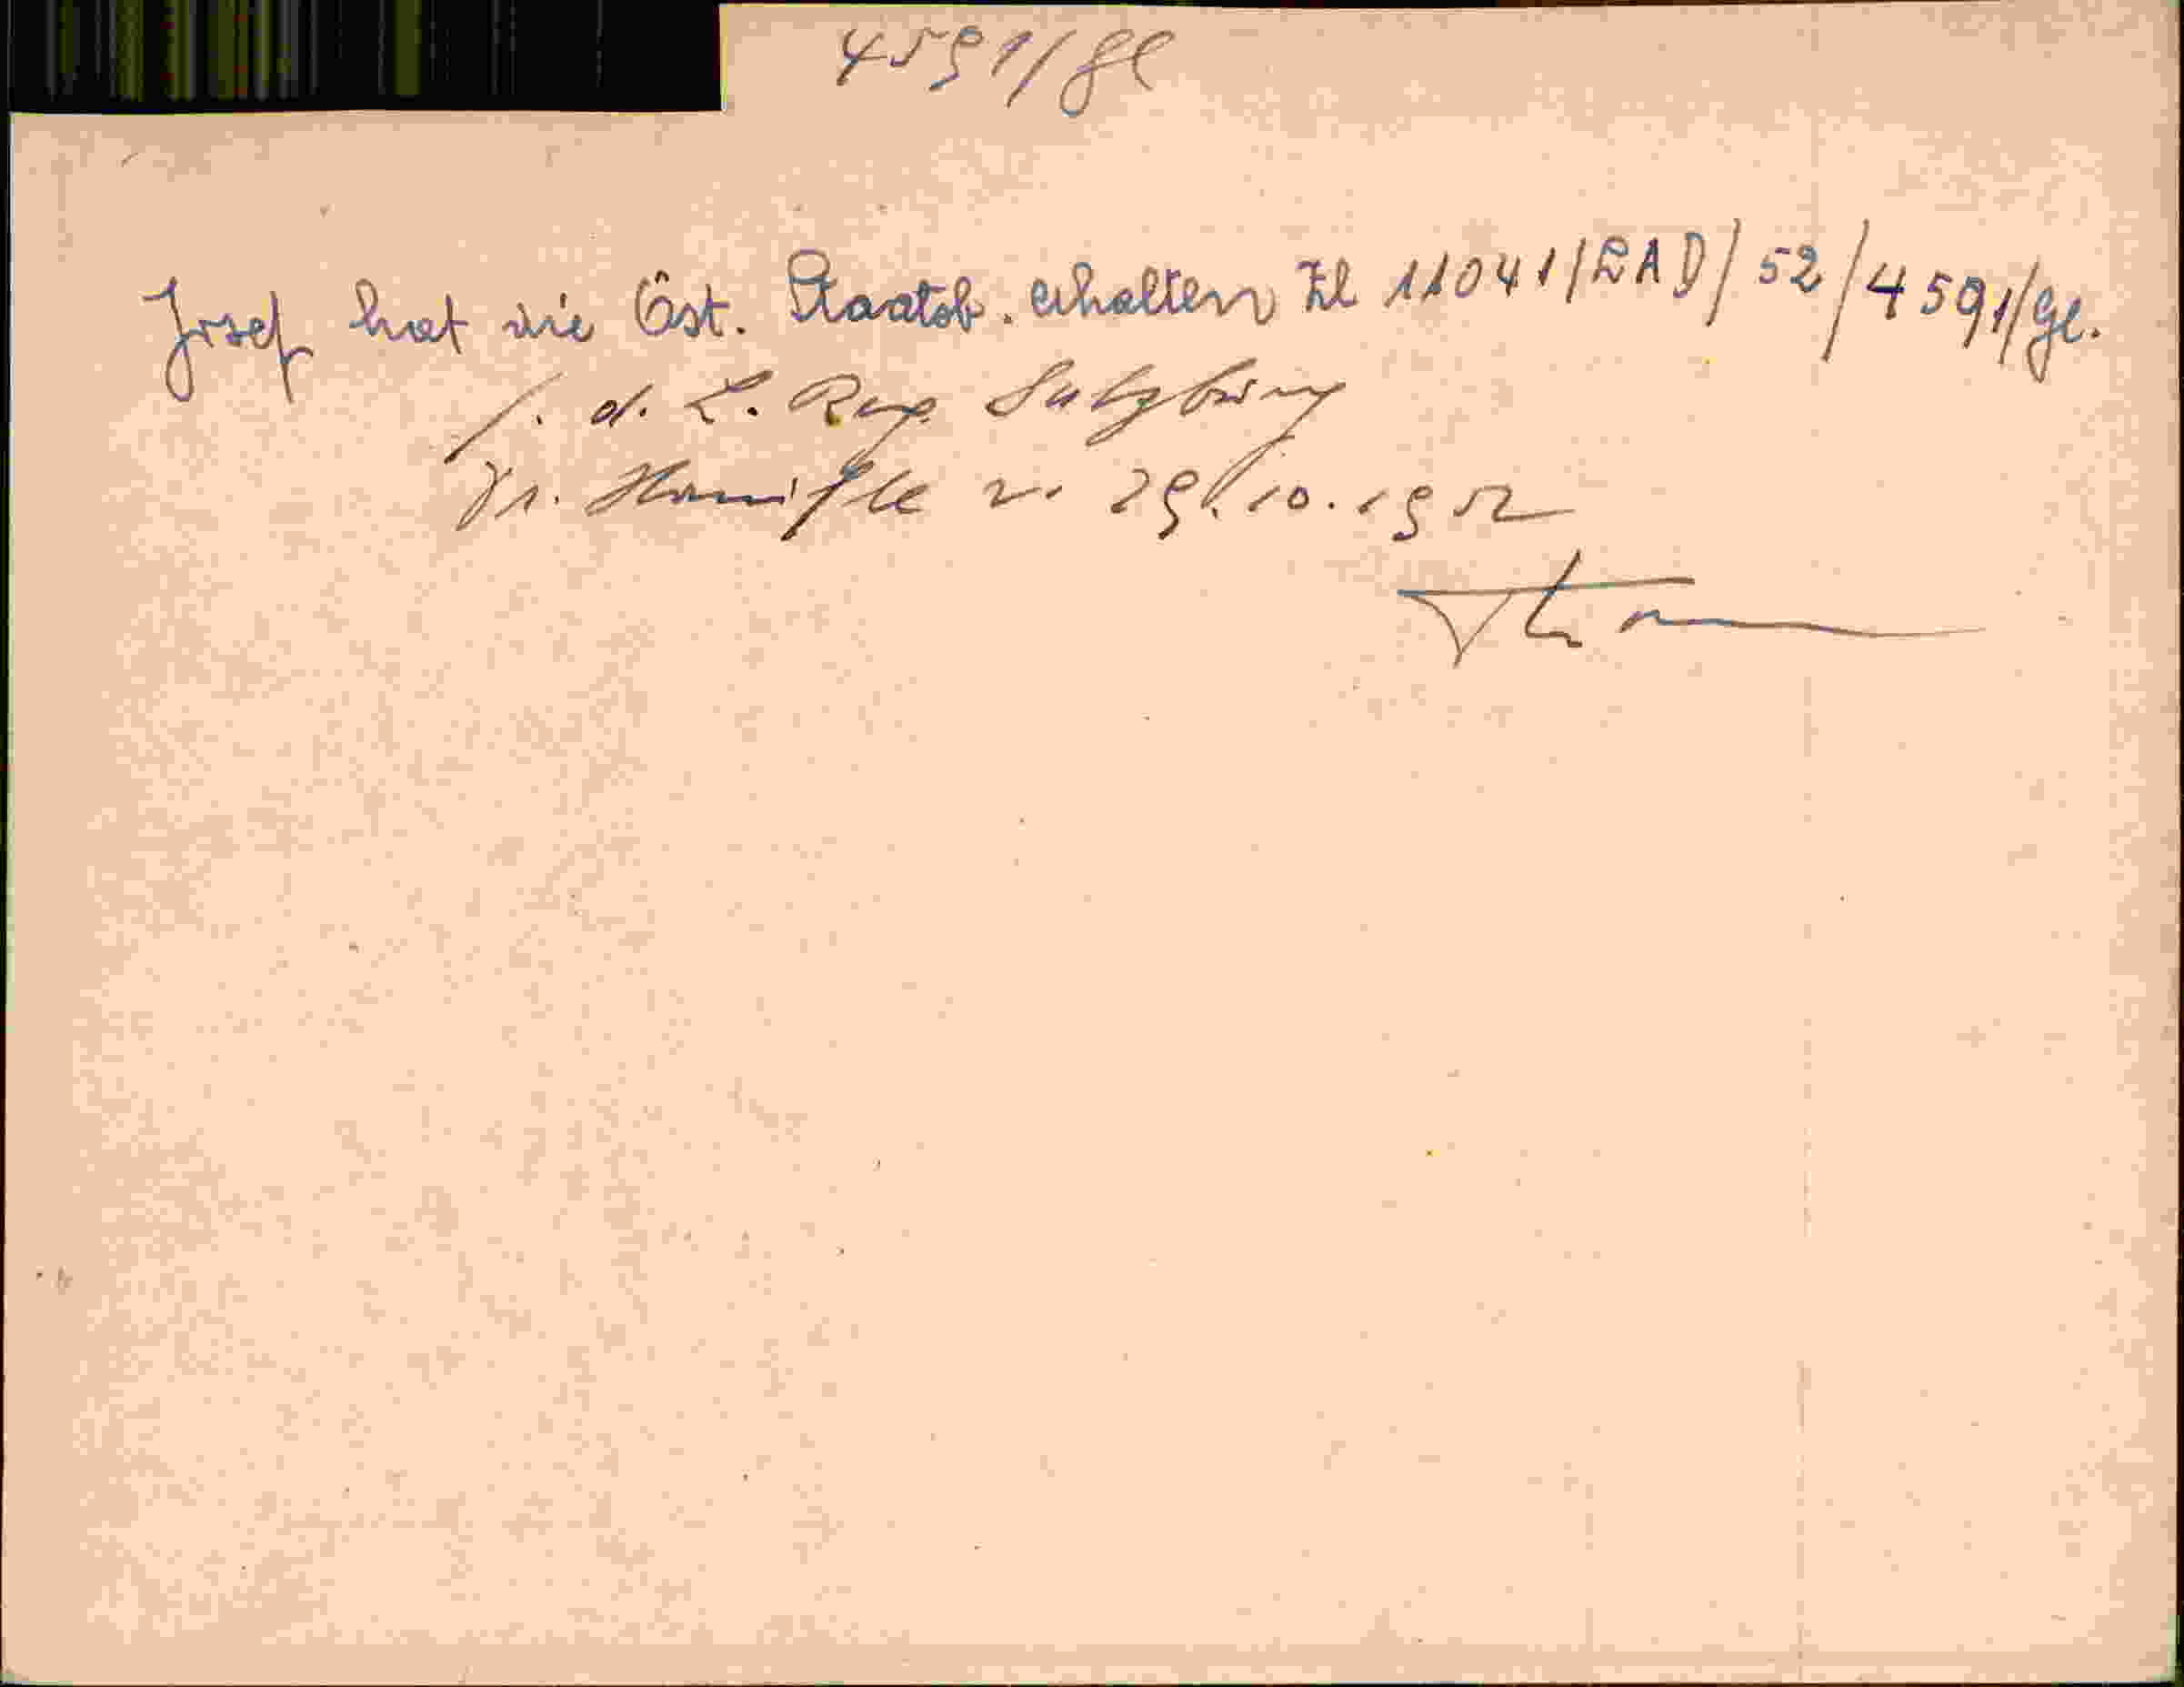 4591/ge
Josef hat die Öst. Staatsb. erhalten Zl 11041/LAD/52/4591/ge.
f. d. L. Reg. Salzburg
Dr. v. 29.10.1952